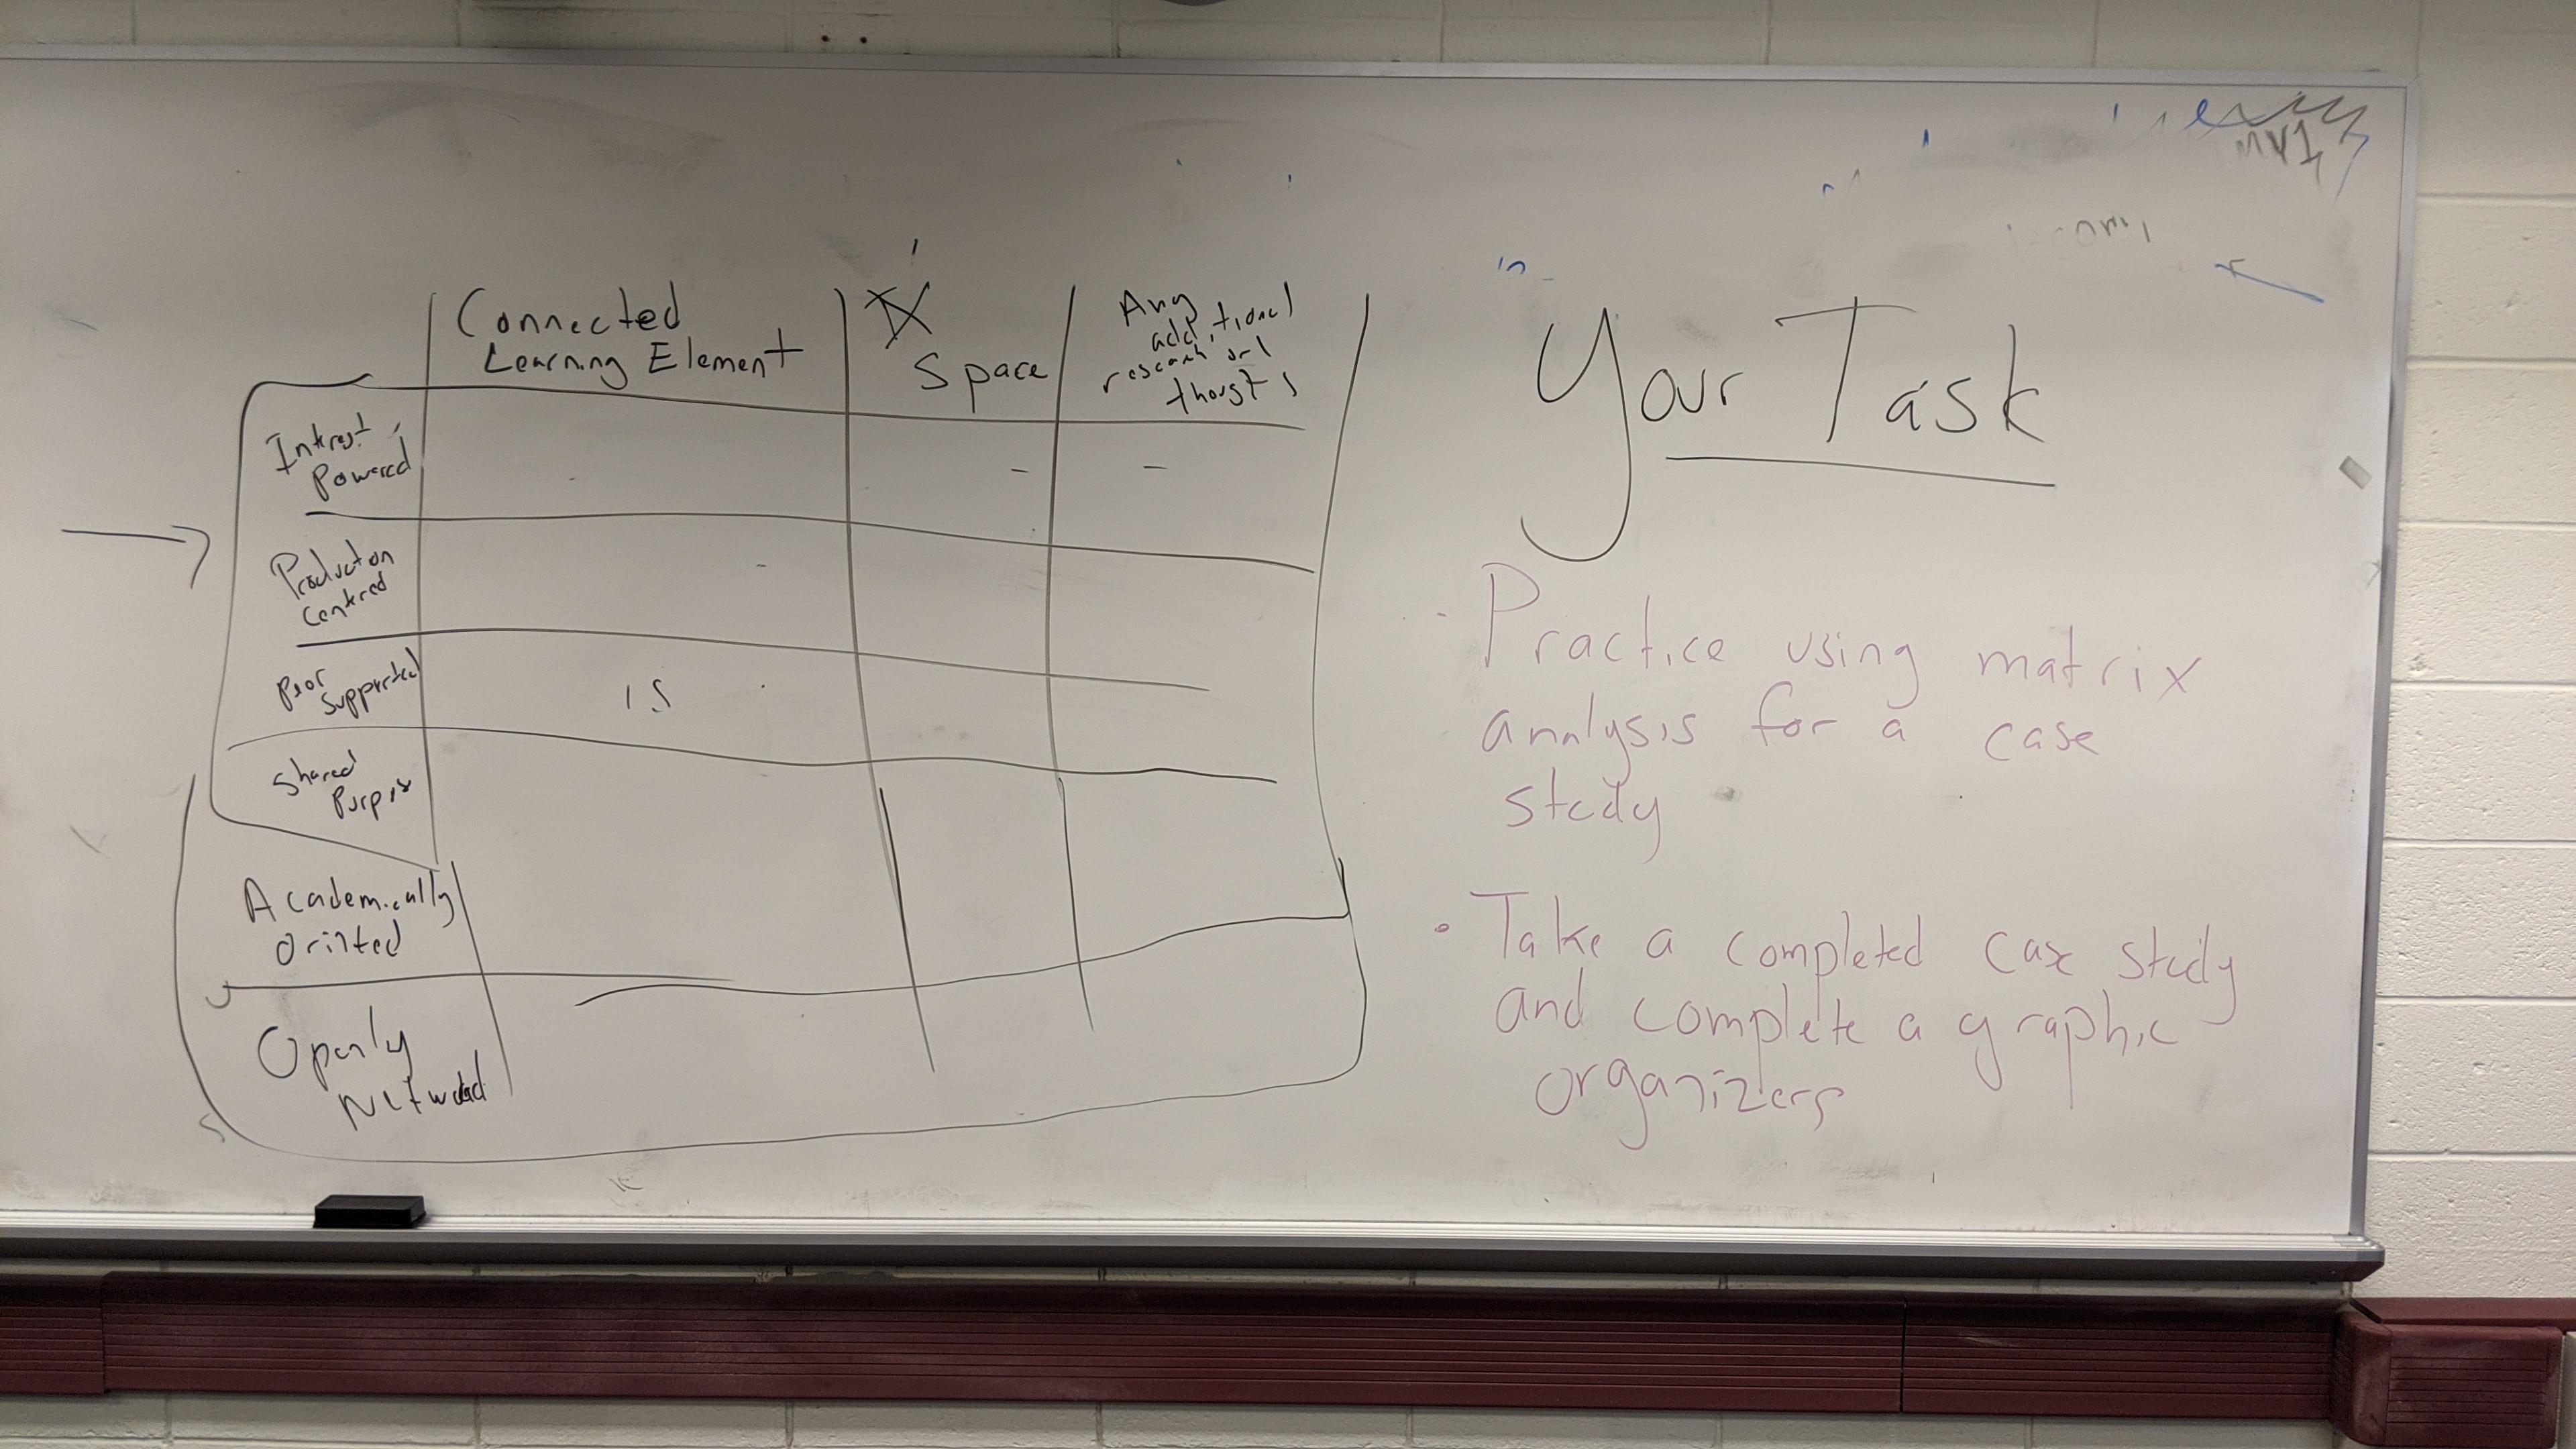 Connected
Learning Element
Space
Any
additional
research or
thougts
Intrest
Powered
Production
Centered
Peer
Supported
Shared
Purpose
Academically
Orinted
Openly
Netwoked
is
Your Task
Practice using matrix
analysis for a case
study
Take a completed case study
and complete a graphic
organizers